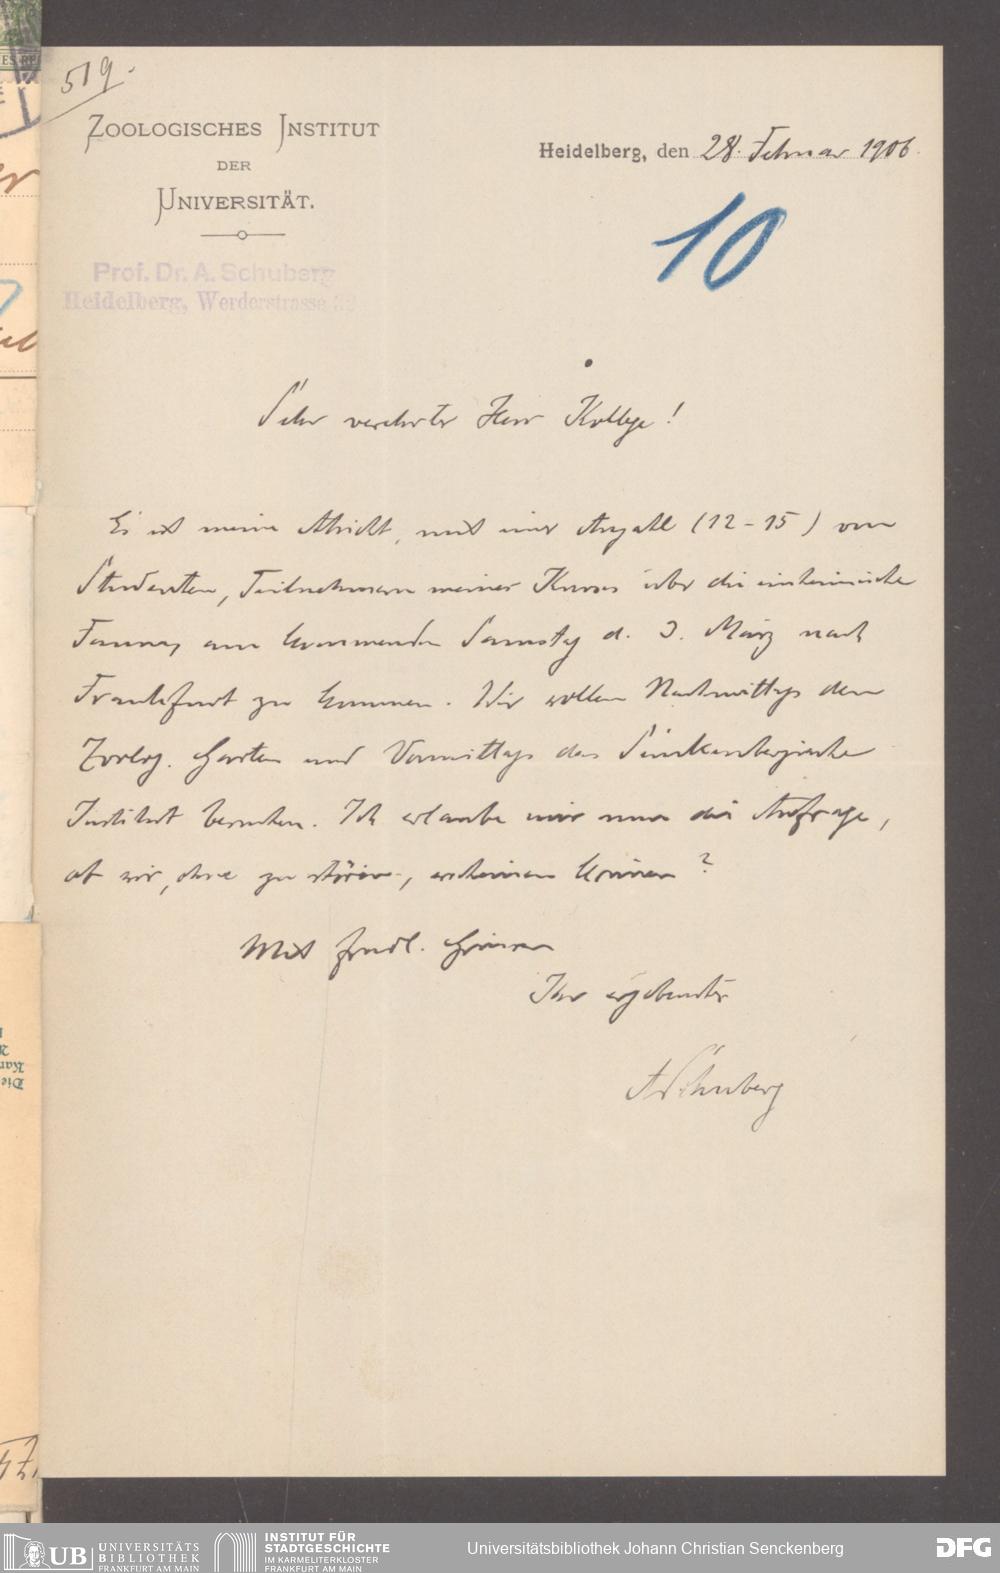 519.
ZOOLOGISCHES INSTITUT
DER
UNIVERSITÄT.
Heidelberg, den 28. Februar 1906.
10
Prof. Dr. A. Schuberg
Heidelberg, Werderstrasse 32
Sehr verehrter Herr Kollege!
Es ist meine Absicht, mit einer Anzahl (12-15) von
Studenten, Teilnehmern meines Kurses über die einheimische
Fauna, am kommenden Samstag d. 3. März nach
Frankfurt zu kommen. Wir wollen Nachmittags den
Zoolog. Garten und Vormittags das Senckenbergische
Institut besuchen. Ich erlaube mir nun die Anfrage,
ob wir, ohne zu stören, erscheinen können?
Mit frndl. Grüssen
Ihr ergebenster
A Schuberg
UB UNIVERSITÄTS
BIBLIOTHEK
FRANKFURT AM MAIN
INSTITUT FÜR
STADTGESCHICHTE
IM KARMELITERKLOSTER
FRANKFURT AM MAIN
Universitätsbibliothek Johann Christian Senckenberg
DFG